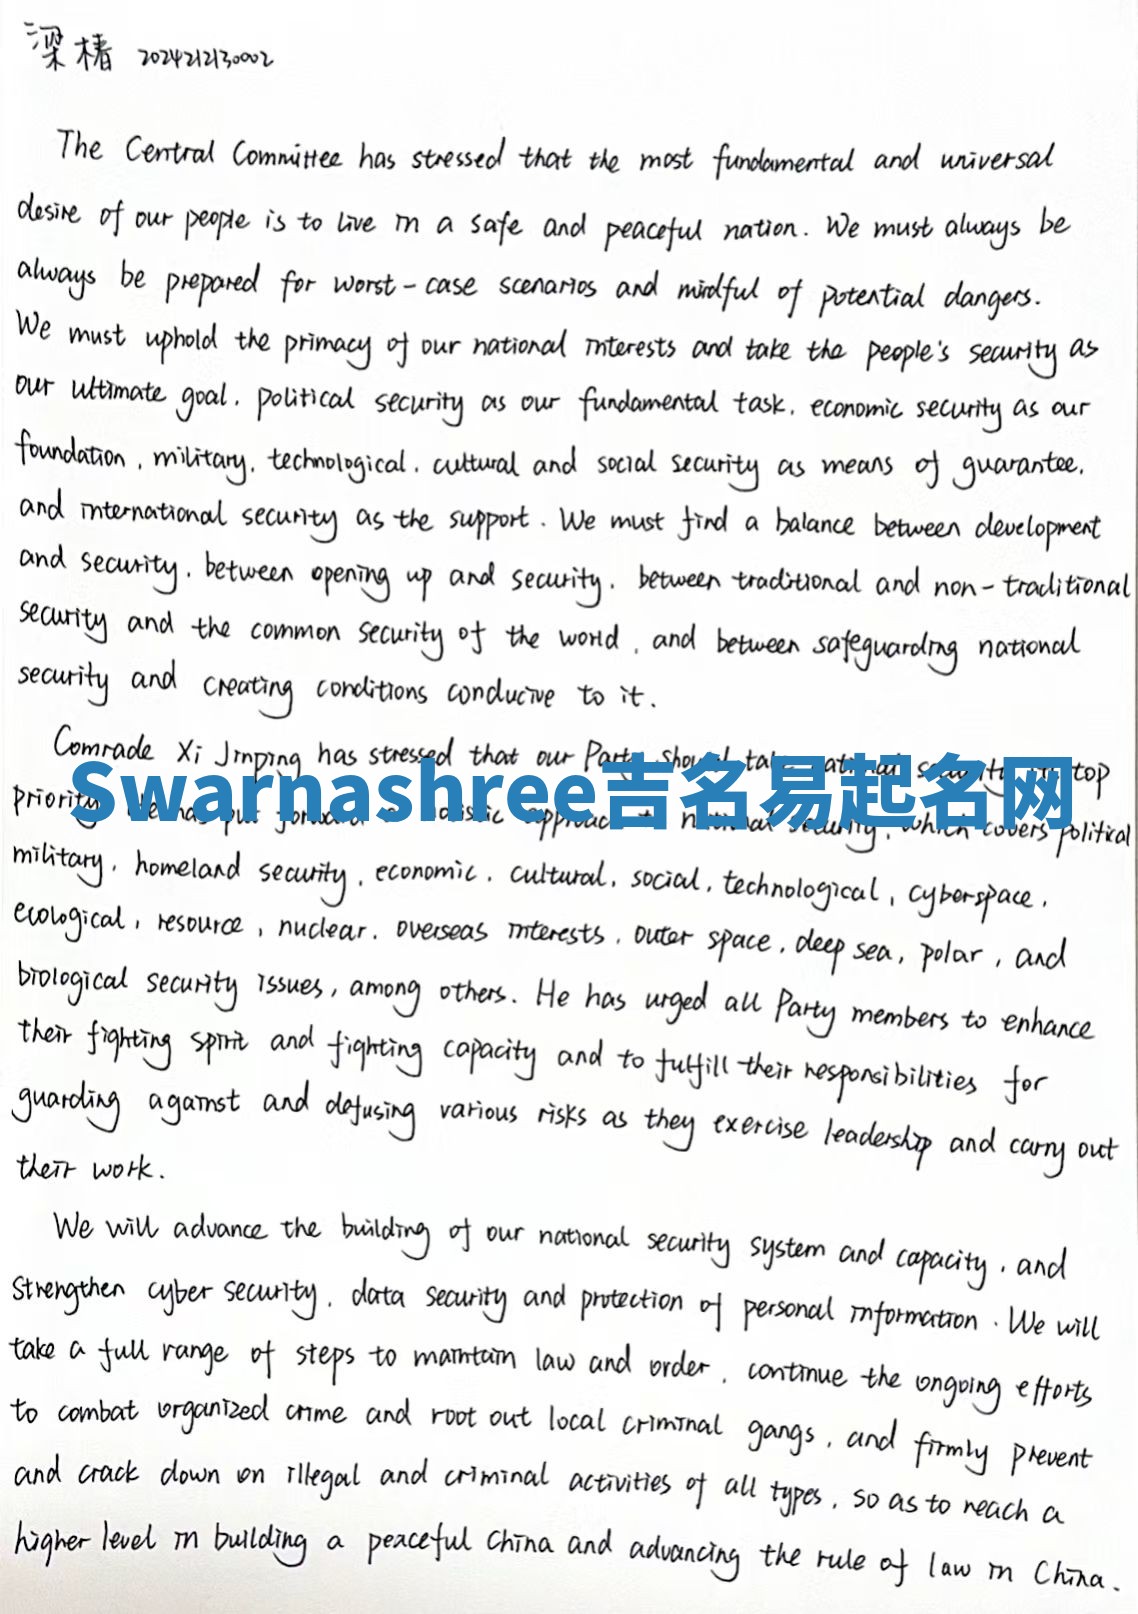 梁椿 2024212130002
The Central Committee has stressed that the most fundamental and universal
desire of our people is to live in a safe and peaceful nation. We must always be
always be prepared for worst-case scenarios and mindful of potential dangers.
We must uphold the primacy of our national interests and take the people's security as
our ultimate goal, political security as our fundamental task, economic security as our
foundation, military, technological, cultural and social security as means of guarantee,
and international security as the support. We must find a balance between development
and security, between opening up and security, between traditional and non-traditional
security and the common security of the world, and between safeguarding national
security and creating conditions conducive to it.
Comrade Xi Jinping has stressed that our Party should take national security top
Swarnashree吉名易起名网
priority. He has put forward holistic approach to national security, which covers political
military, homeland security, economic, cultural, social, technological, cyberspace,
ecological, resource, nuclear, overseas interests, outer space, deep sea, polar, and
biological security issues, among others. He has urged all Party members to enhance
their fighting spirit and fighting capacity and to fulfill their responsibilities for
guarding against and defusing various risks as they exercise leadership and carry out
their work.
We will advance the building of our national security system and capacity, and
strengthen cyber security, data security and protection of personal information. We will
take a full range of steps to maintain law and order, continue the ongoing efforts
to combat organized crime and root out local criminal gangs, and firmly prevent
and crack down on illegal and criminal activities of all types, so as to reach a
higher level in building a peaceful China and advancing the rule of law in China.